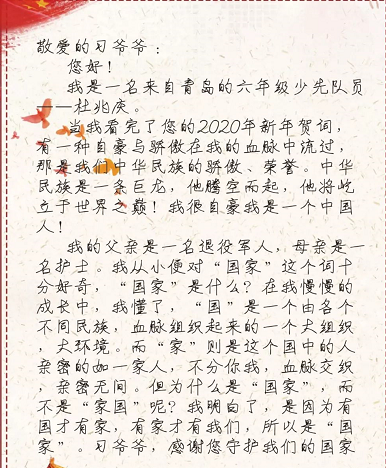 敬爱的习爷爷：
您好！
我是一名来自青岛的六年级少先队员
——杜兆庆。
当我看完了您的2020年新年贺词，
有一种自豪与骄傲在我的血脉中流过，
那是我们中华民族的骄傲、荣誉。中华
民族是一条巨龙，他腾空而起，他将屹
立于世界之巅！我很自豪我是一个中国
人！
我的父亲是一名退役军人，母亲是一
名护士。我从小便对“国家”这个词十
分好奇，“国家”是什么？在我慢慢的
成长中，我懂了，“国”是一个由各个
不同民族，血脉组织起来的一个大组织
，大环境。而“家”则是这个国中的人
亲密的如一家人，不分你我，血脉交织
，亲密无间。但为什么是“国家”，而
不是“家国”呢？我明白了，是因为有
国才有家，有家才有我们，所以是“国
家”。习爷爷，感谢您守护我们的国家